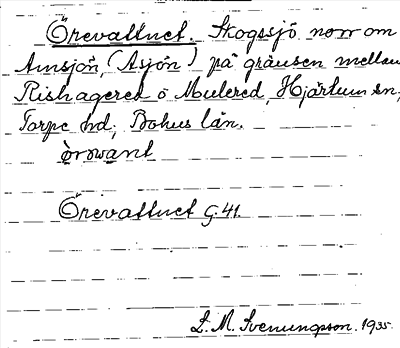 Örevattnet. Skogssjö norr om
Amsjön, (Asjön) på gränsen mellan
Rishagered o Mulered, Hjärtum sn,
Torpe hd, Bohus län.
òrəwant
Örevattnet G.41.
L. M. Svenungsson. 1935.